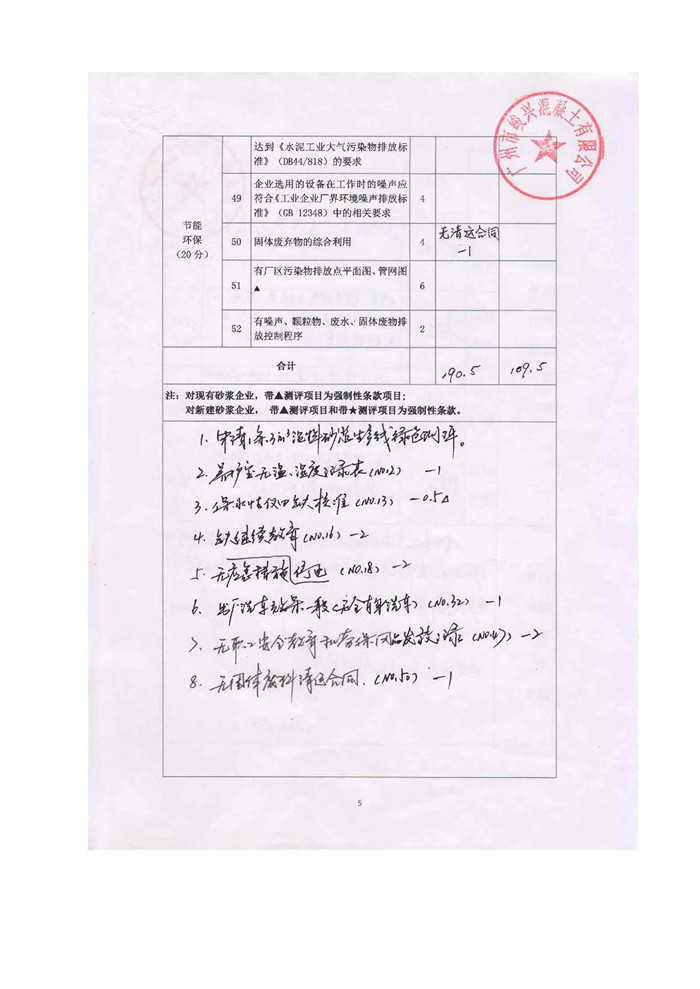 广州市峻兴混凝土有限公司
达到《水泥工业大气污染物排放标
准》（DB44/818）的要求
节能
环保
（20分）
49
企业选用的设备在工作时的噪声应
符合《工业企业厂界环境噪声排放标
准》（GB 12348）中的相关要求
4
50
固体废弃物的综合利用
4
无清运合同
-1
51
有厂区污染物排放点平面图、管网图
▲
6
52
有噪声、颗粒物、废水、固体废物排
放控制程序
2
合计
190.5
189.5
注：对现有砂浆企业，带▲测评项目为强制性条款项目；
对新建砂浆企业， 带▲测评项目和带★测评项目为强制性条款。
1. 申请1条3m³湿拌砂浆生产线绿色测评。
2. 养护室无温、湿度记录表（NO12） -1
3. 保水性仪四缺校准（NO.13） -0.5▲
4. 缺继续教育（NO.16） -2
5. 无应急措施停电（NO.18） -2
6. 出厂洗车效果一般（无全自动洗车）（NO.32） -1
7. 无职工安全教育和劳保用品发放记录（NO.47） -2
8. 无固体废料清运合同.（NO.50） -1
5